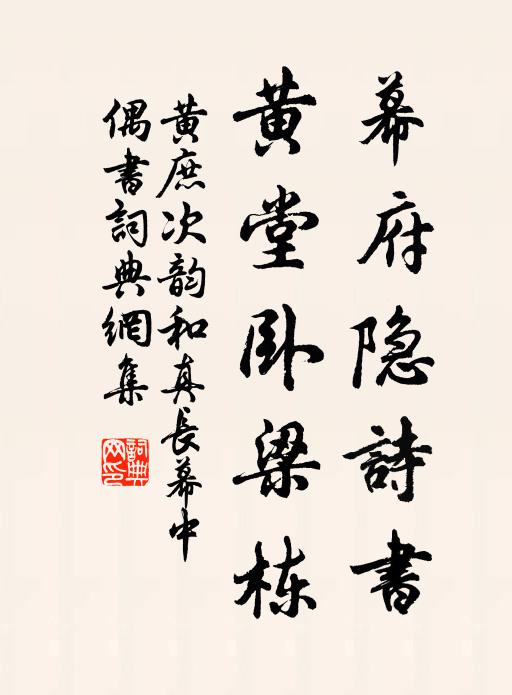 幕府隐詩書
黄堂卧梁栋
黄庶次韵和真長幕中
偶書詞典網集
詞典网印